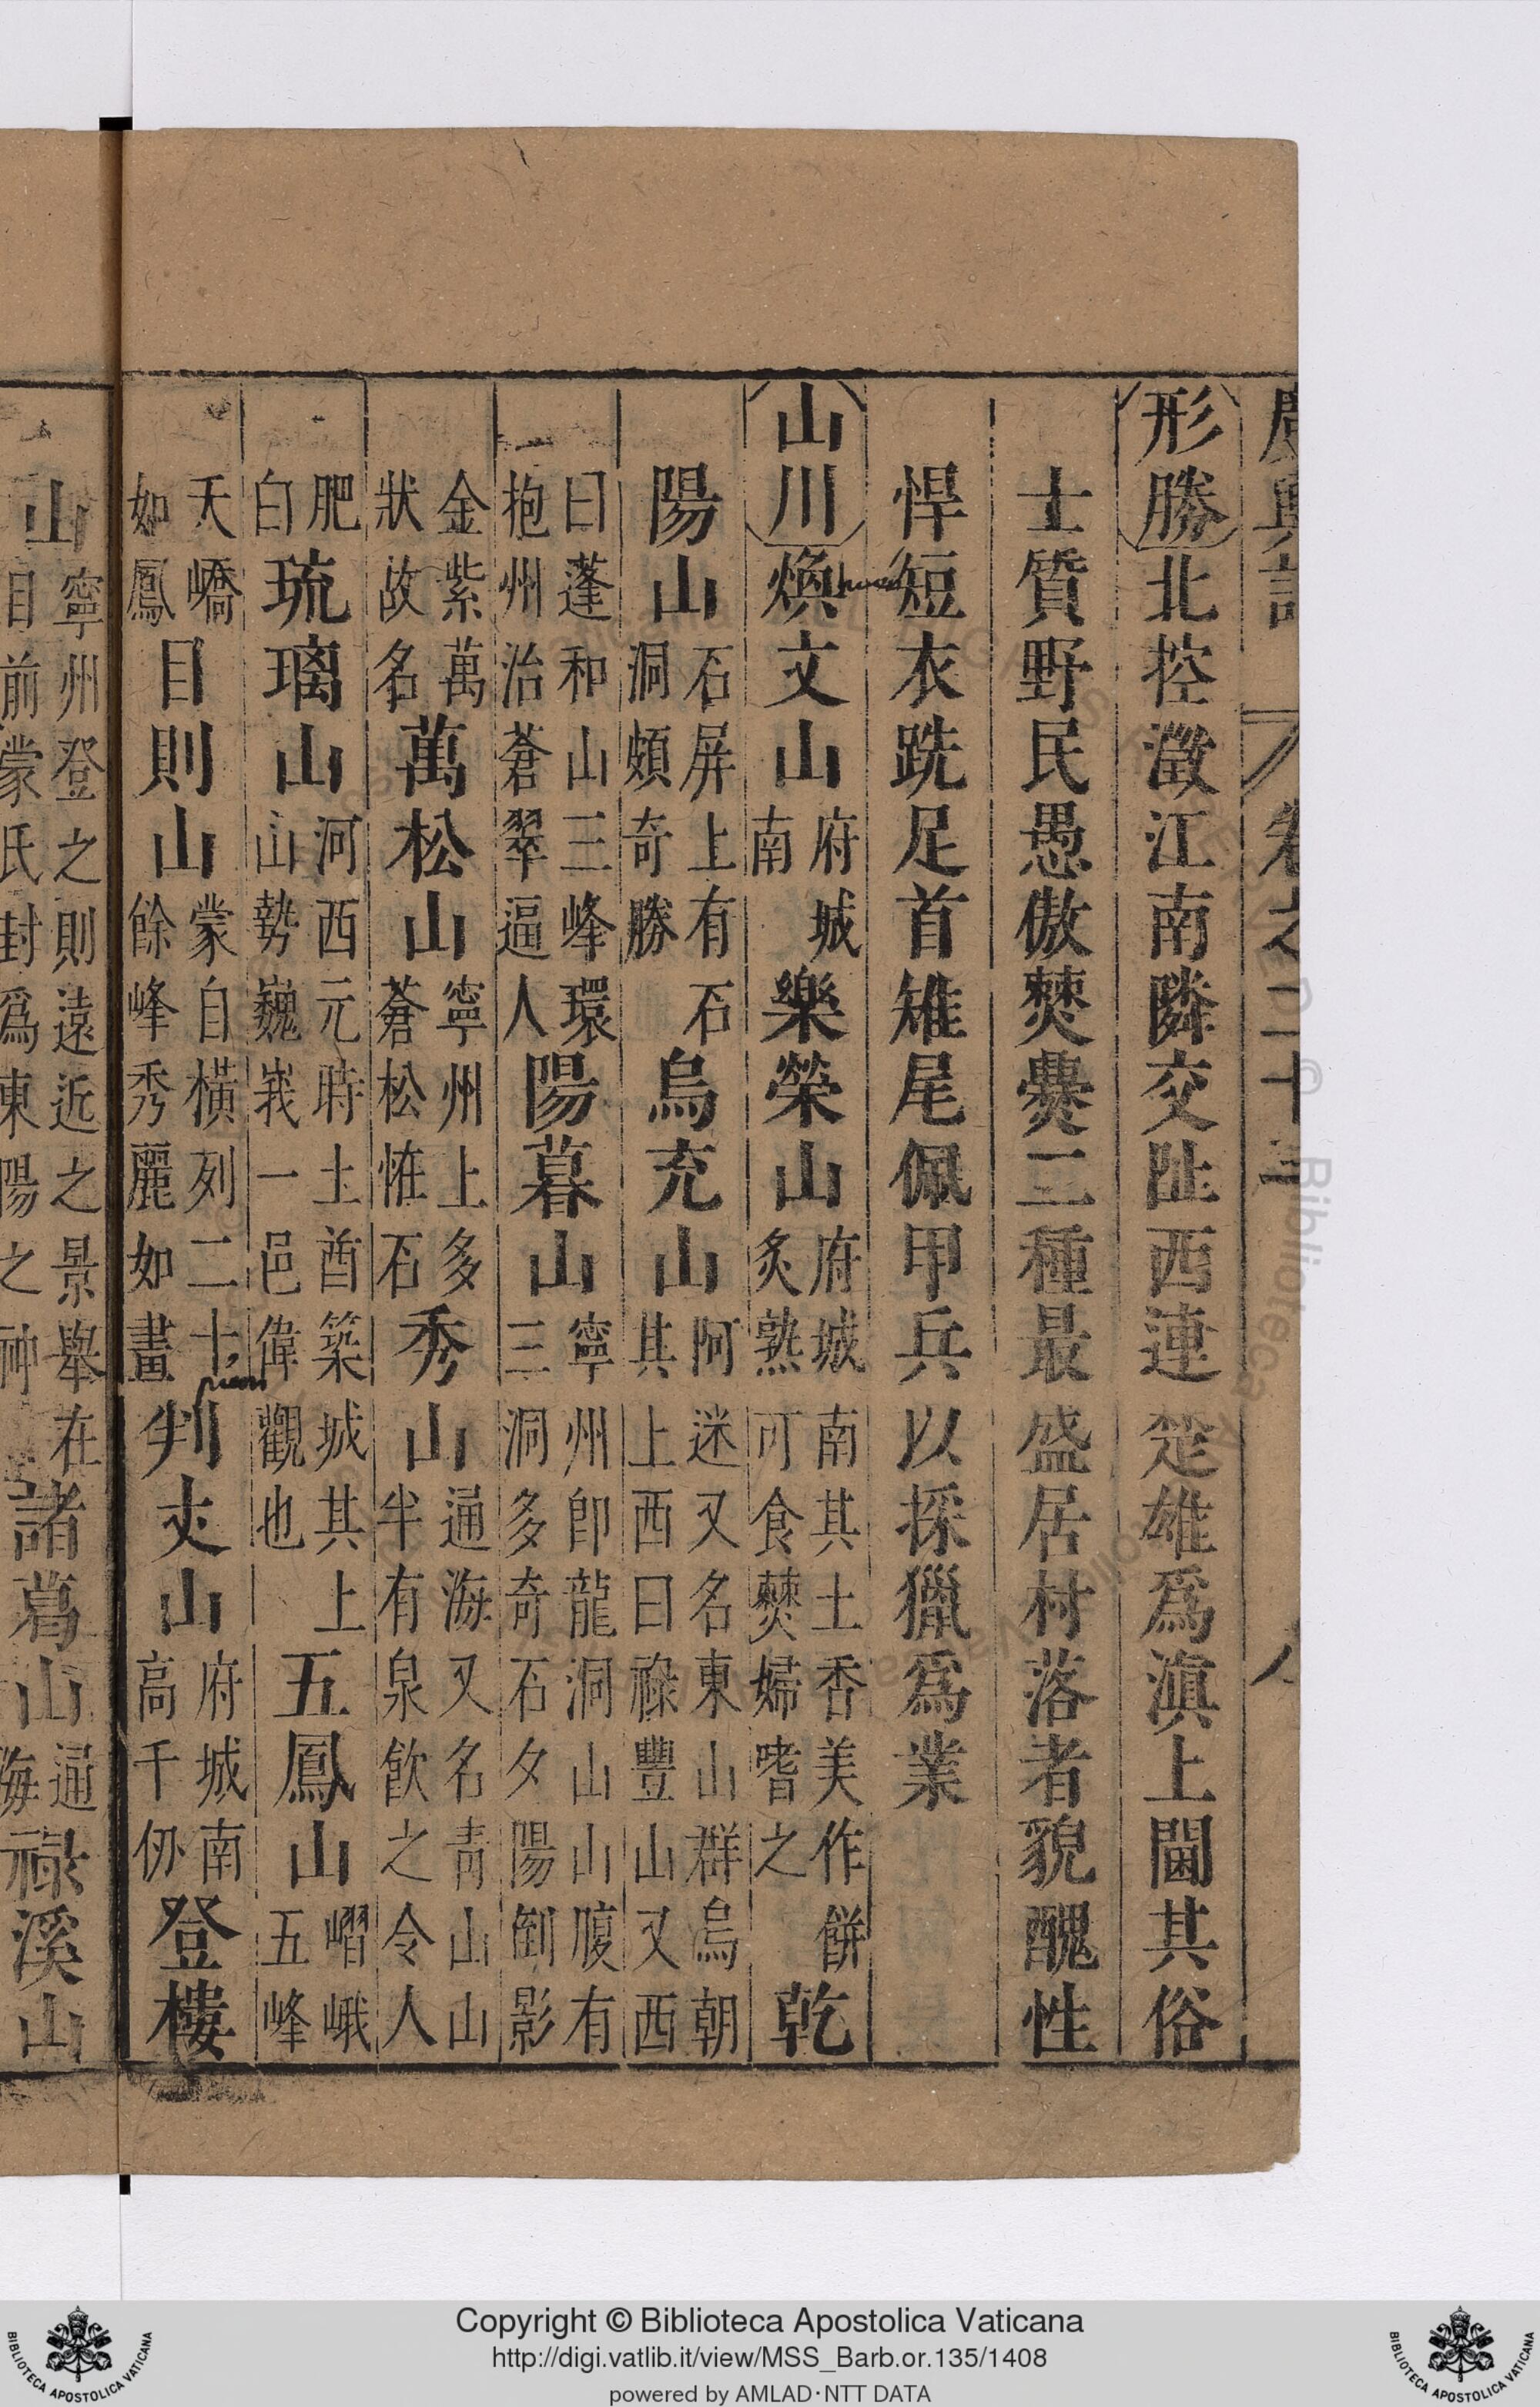 卷之二十
八
形勝北控澂江南隣交阯西連楚雄爲滇上閫其俗
士質野民愚傲僰爨二種最盛居村落者貌醜性
悍短衣跣足首雉尾佩甲兵以採獵爲業
山川煥文山府城南樂榮山府城南其土香美作餅炙熟可食僰婦嗜之乾
陽山石屏上有石洞頗奇勝烏充山阿迷又名東山群烏朝其上西曰祿豐山又西
曰蓬和山三峰環抱州治蒼翠逼人陽暮山寧州卽龍洞山山腹有三洞多奇石夕陽倒影
金紫萬狀故名萬松山寧州上多蒼松恠石秀山通海又名青山山半有泉飲之令人
肥白琉璃山河西元時土酋築城其上山勢巍峩一邑偉觀也五鳳山嶍峨五峰
天嶠如鳳目則山蒙自橫列二十餘峰秀麗如畫判夹山府城南高千仞登樓
山寧州登之則遠近之景舉在目前蒙氏封爲東陽之神諸葛山通海祿溪山
Copyright © Biblioteca Apostolica Vaticana
http://digi.vatlib.it/view/MSS_Barb.or.135/1408
powered by AMLAD·NTT DATA
BIBLIOTECA APOSTOLICA VATICANA
BIBLIOTECA APOSTOLICA VATICANA